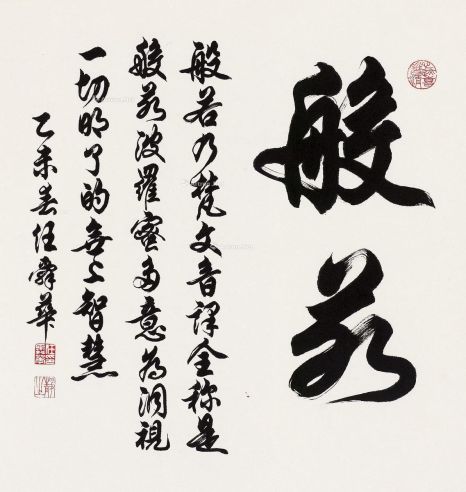 般若
般若乃梵文音译全称是
般若波罗密多意为洞视
一切明了的无上智慧
乙未春任舜华